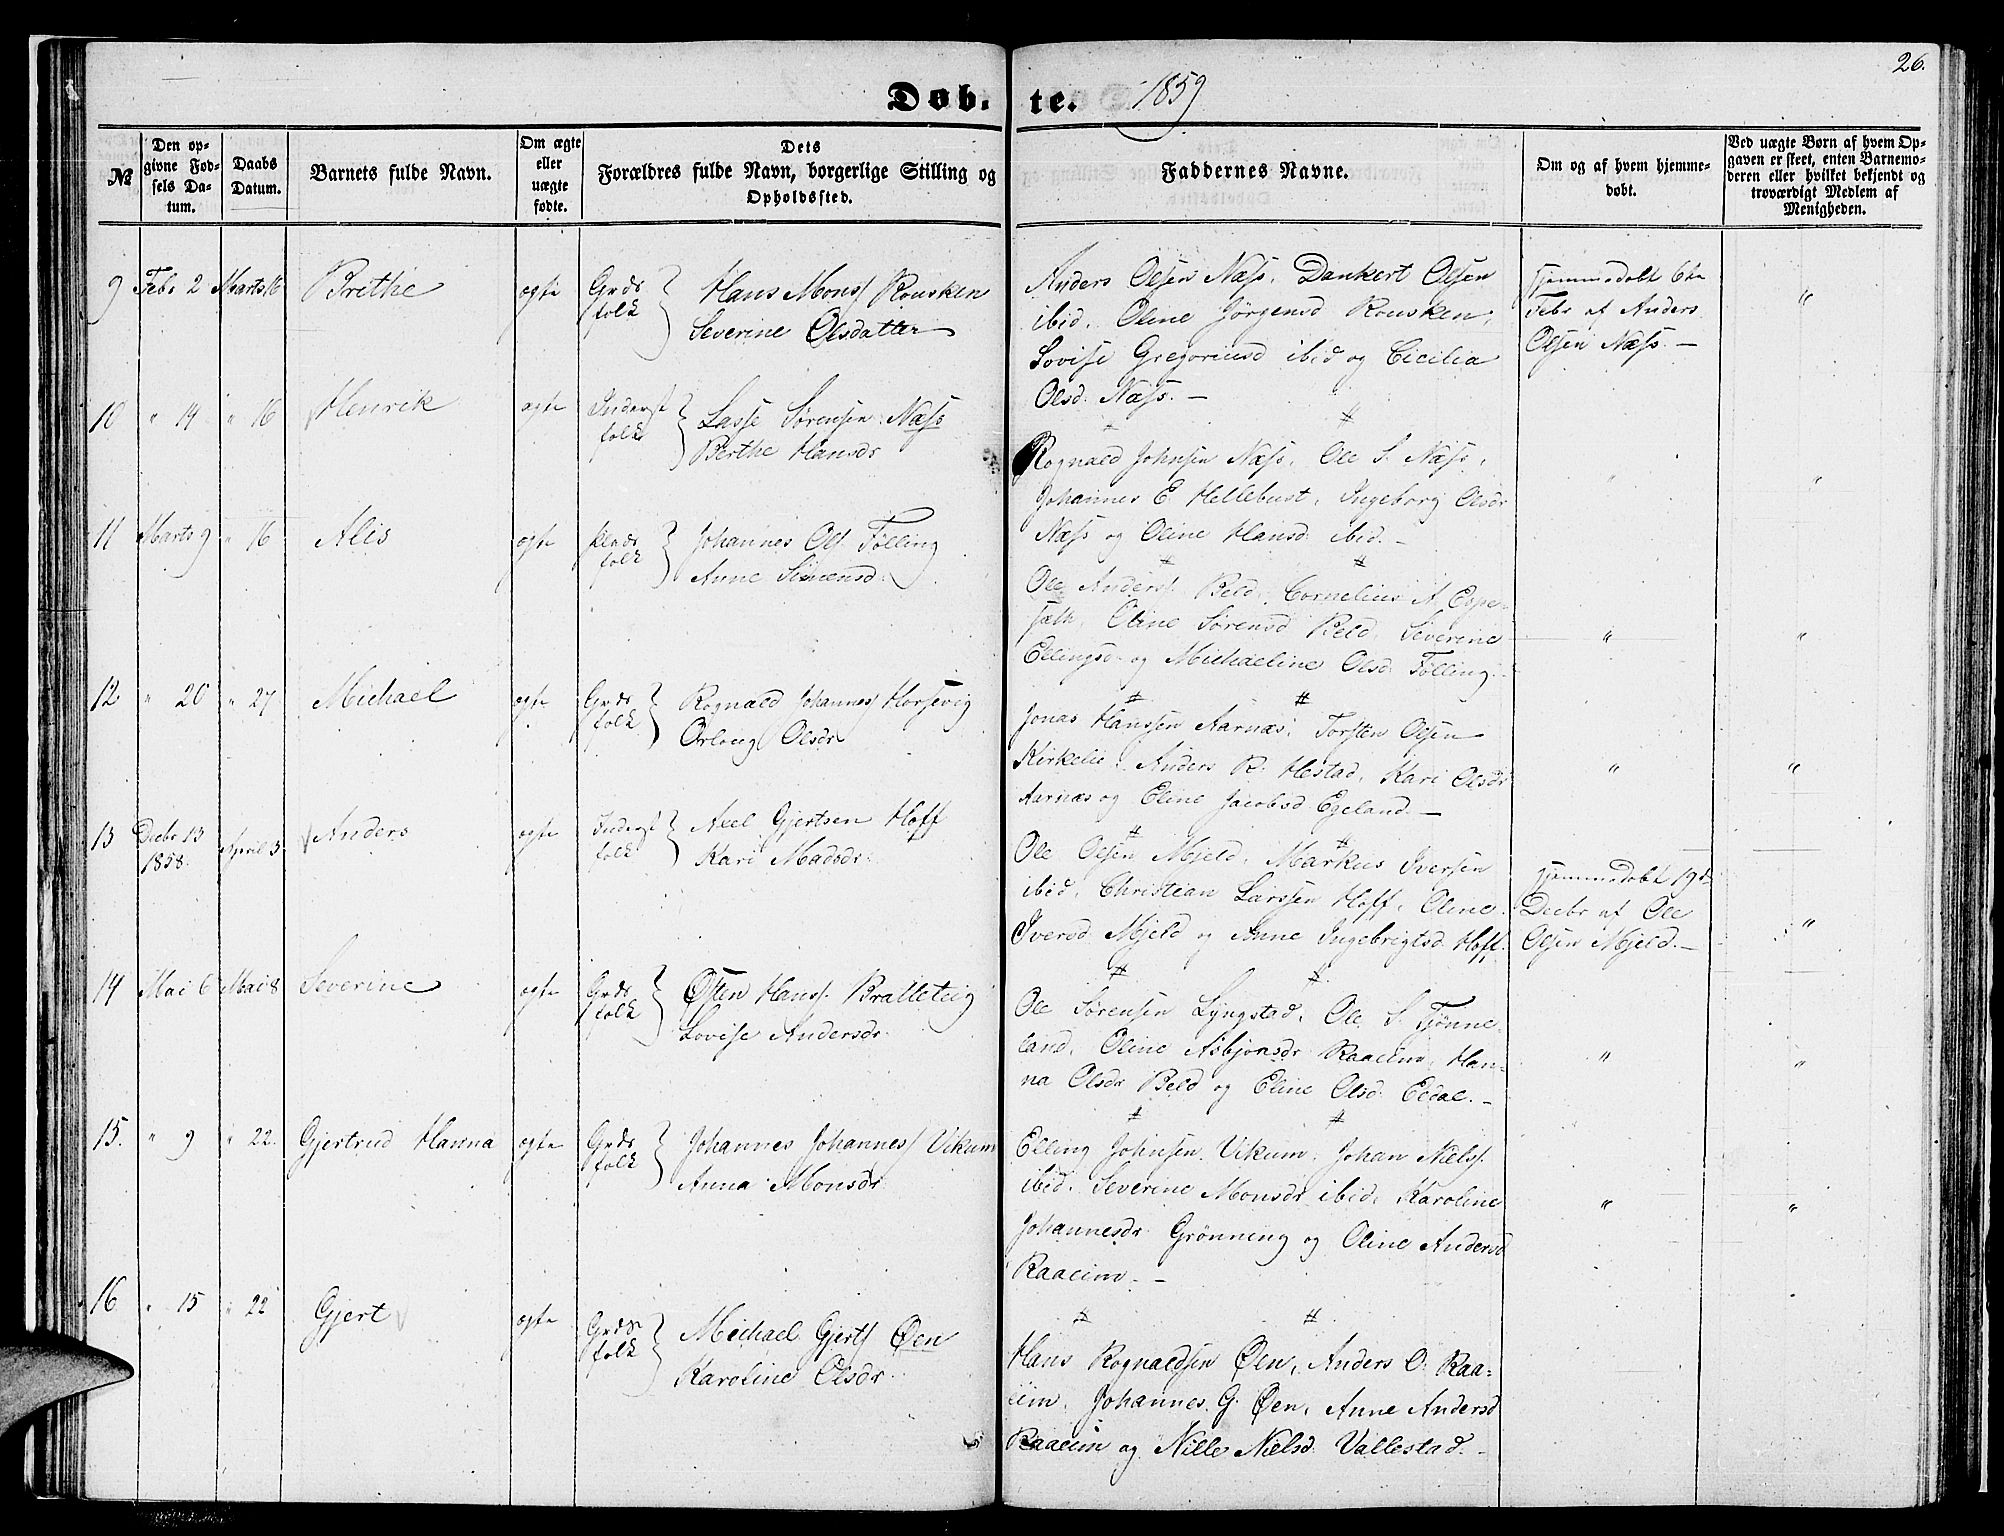 26.
Døb. te. 1859
№
Den op-
givne Fød-
sels Da-
tum.
Daabs
Datum.
Barnets fulde Navn.
Om ægte
eller
uægte
fødte.
Dets
Forældres fulde Navn, borgerlige Stilling og
Opholdssted.
Faddernes Navne.
Om og af hvem hjemme-
døbt.
Ved uægte Børn af hvem Op-
gaven er skeet, enten Barnemo-
deren eller hvilket bekjendt og
troværdigt Medlem af
Menigheden.
9 Febr 2 Marts 16 Brithe ægte Grds
folk Hans Mons Rousken
Severine Olsdatter
Anders Olsen Næss, Dankert Olsen
ibid, Oline Jørgensd Rousken,
Lovise Gregoriusd ibid og Cicilia
Olsd. Næss. —
Hjemmedøbt 6te
Febr af Anders
Olsen Næss. —
"
10 " 14 " 16 Henrik ægte Inderst
folk Lasse Sørensen Næss
Berthe Hansdr
Rognald Johnsen Næss, Ole S. Næss,
Johannes E. Hellebust, Ingeborg Olsdr
Næss og Oline Hansd. ibid. —
" "
11 Marts 9 " 16 Alis ægte Plads
folk Johannes Ols. Følling
Anne Simensd.
Ole Anders. Beld, Cornelius A. Espe-
sæth, Oline Sørensd Beld, Severine
Ellingsd. og Michaeline Olsd. Følling.
" "
12 " 20 " 27 Michael ægte Grds
folk Rognald Johannes Horsevig
Orloug Olsdr
Jonas Hanssen Aarnæs, Torsten Olsen
Kirkelie, Anders R. Hestad, Kari Olsdr
Aarnæs og Eline Jacobsd Egeland. —
" "
13 Decbr 13
1858. April 3 Anders ægte Inderst
folk Axel Gjertsen Hoff
Kari Madsdr.
Ole Olsen Mjeld, Markus Iversen
ibid, Christian Larssen Hoff, Oline
Iversd Mjeld og Anne Ingebrigtsd. Hoff.
Hjemmedøbt 19de
Decbr af Ole
Olsen Mjeld. —
"
14 Mai 6 Mai 8 Severine ægte Grds
folk Østen Hans. Bratteteig
Lovise Andersdr.
Ole Sørensen Lyngstad, Ole S. Tjønne-
land, Oline Asbjørnsdr Raaeim, Han-
na Olsdr Beld og Eline Olsd. Eldal. —
" "
15. " 9 " 22. Gjertrud Hanna ægte Grds
folk Johannes Johannes Vikum
Anna Monsdr
Elling Johnsen Vikum, Johan Niels.
ibid. Severine Monsdr ibid, Karoline
Johannesdr Grønning og Oline Andersd
Raaeim. —
" "
16 " 15 " 22 Gjert ægte Grds
folk Michael Gjerts Øen
Karoline Olsdr.
Hans Rognaldsen Øen, Anders O. Raa-
eim, Johannes G. Øen, Anne Andersd
Raaeim og Nille Nielsd. Vallestad. —